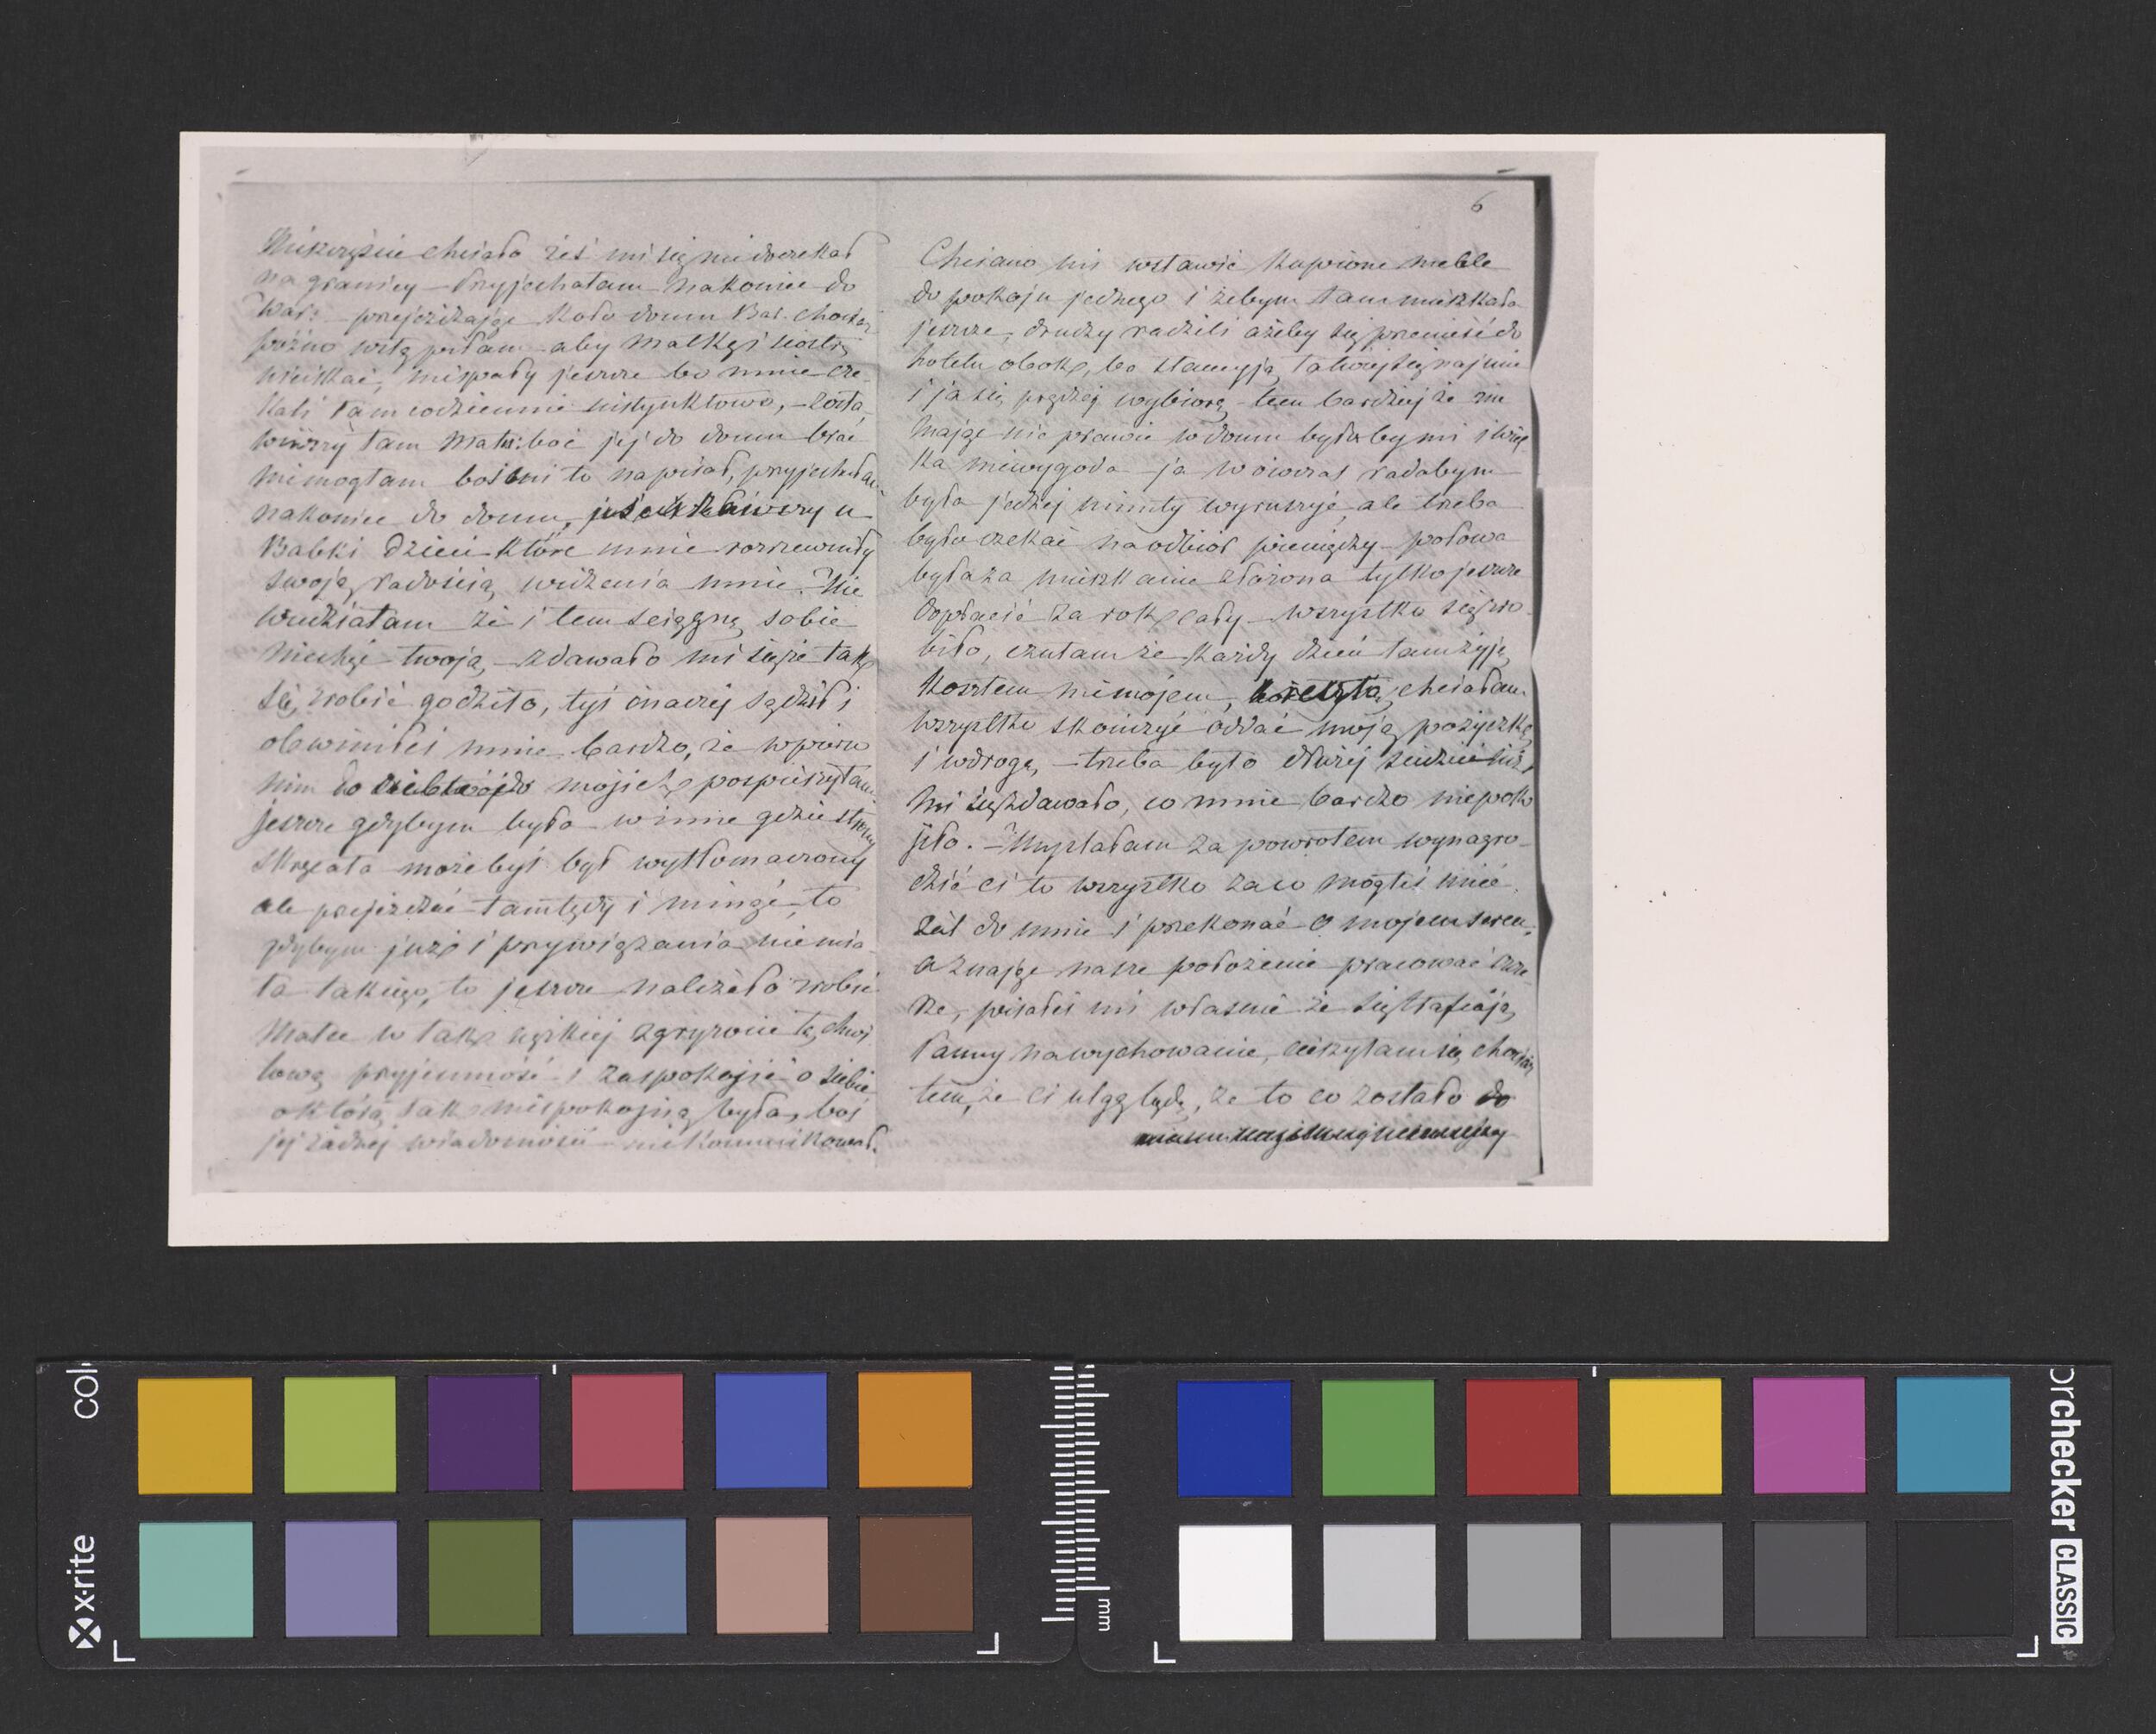 Nieszczęście chciało żeś mi się nie doczekał
na granicy – Przyjechałam nakoniec do
War: – przejeżdżając koło domu Bar. chociaż
późno wstąpiłam aby Matkę i siostrę
uściskać, nie spały jeszcze bo mnie cze-
kali tam codziennie instynktowo, – zosta-
wiwszy tam
nie mogłam boś mi to napisał, przyjechałam
nakoniec do domu, uściskawszy u
Babki dzieci które mnie rozrzewniły
swoją radością widzenia mnie. Nie
wiedziałam że i tem ściągnę sobie
niechęć twoją, – zdawało mi się że tak
się zrobić godziło, tyś inaczej sądził i
obwiniłeś mnie bardzo, że wpierw
nim do mojich pospieszyłam
jeszcze gdybym była w inne gdzie strony
skręcała może byś był wytłomaczony
ale przejeżdżać tamtędy i minąć, to
gdybym już i przywiązania nie mia-
ła takiego, to jeszcze należało zrobić
Matce w tak ciężkiej zgryzocie tę chwi-
lową przyjemność i zaspokojić o siebie
o którą tak niespokojną była, boś
jej żadnej wiadomości nie komunikował.
6
Chciano mi wstawić kupione meble
do pokoju jednego i żebym tam mieszkała
jeszcze, drudzy radzili ażeby się przenieść do
hotelu obok, bo stancyją łatwiej się najmie
i ja się prędzej wybiorę – tem bardziej że nie
mając nic prawie w domu byłaby mi i więk-
ka niewygoda – ja wówczas radabym
była jednej minuty wyruszyć, ale trzeba
było czekać na odbiór pieniędzy – połowa
była za mieszkanie złożona tylko jeszcze
dopłacić za rok cały – wszystko się zro-
biło, czułam że każdy dzień tam żyję
kosztem nie mojem, chciałam
wszystko skończyć oddać moją pożyczkę
i w drogę, – trzeba było dłużej siedzieć niż
mi się zdawało, co mnie bardzo niepoko-
jiło. – Myślałam za powrotem wynagro-
dzić ci to wszystko za co mogłeś mieć
żal do mnie i przekonać o mojem sercu,
a znając nasze położenie pracować szcze-
rze, pisałeś mi właśnie że się trafiają
Panny na wychowanie, cieszyłam się chociaż
tem, że ci ulgą będę, że to co zostało do